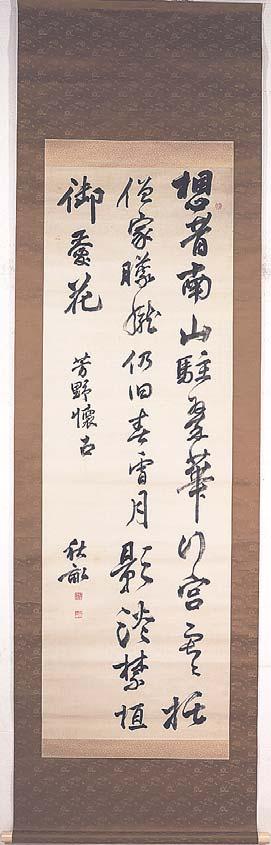 想昔南山駐翠華行宮托
僧家朦朧仍旧春宵月影淡禁垣
御愛花
芳野懐古
秋畝